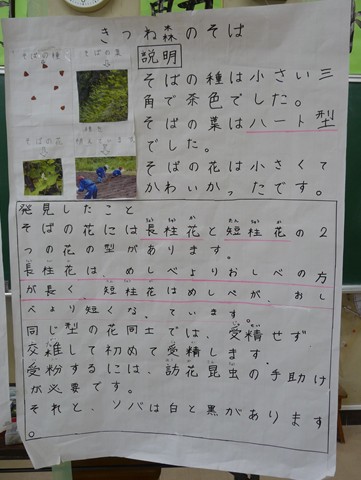 きつね森のそば
説明
そばの種
そばの葉
そばの花
そばの種は小さい三
角で茶色でした。
そばの葉はハート型
でした。
そばの花は小さくて
かわいかったです。
発見したこと
そばの花には長柱花と短柱花の2
つの花の型があります。
長柱花は、めしべよりおしべの方
が長く、短柱花はめしべが、おし
べより短くなっています。
同じ型の花同士では、受精せず
交雑して初めて受精します。
受粉するには、訪花昆虫の手助け
が必要です。
それと、ソバは白と黒があります
。